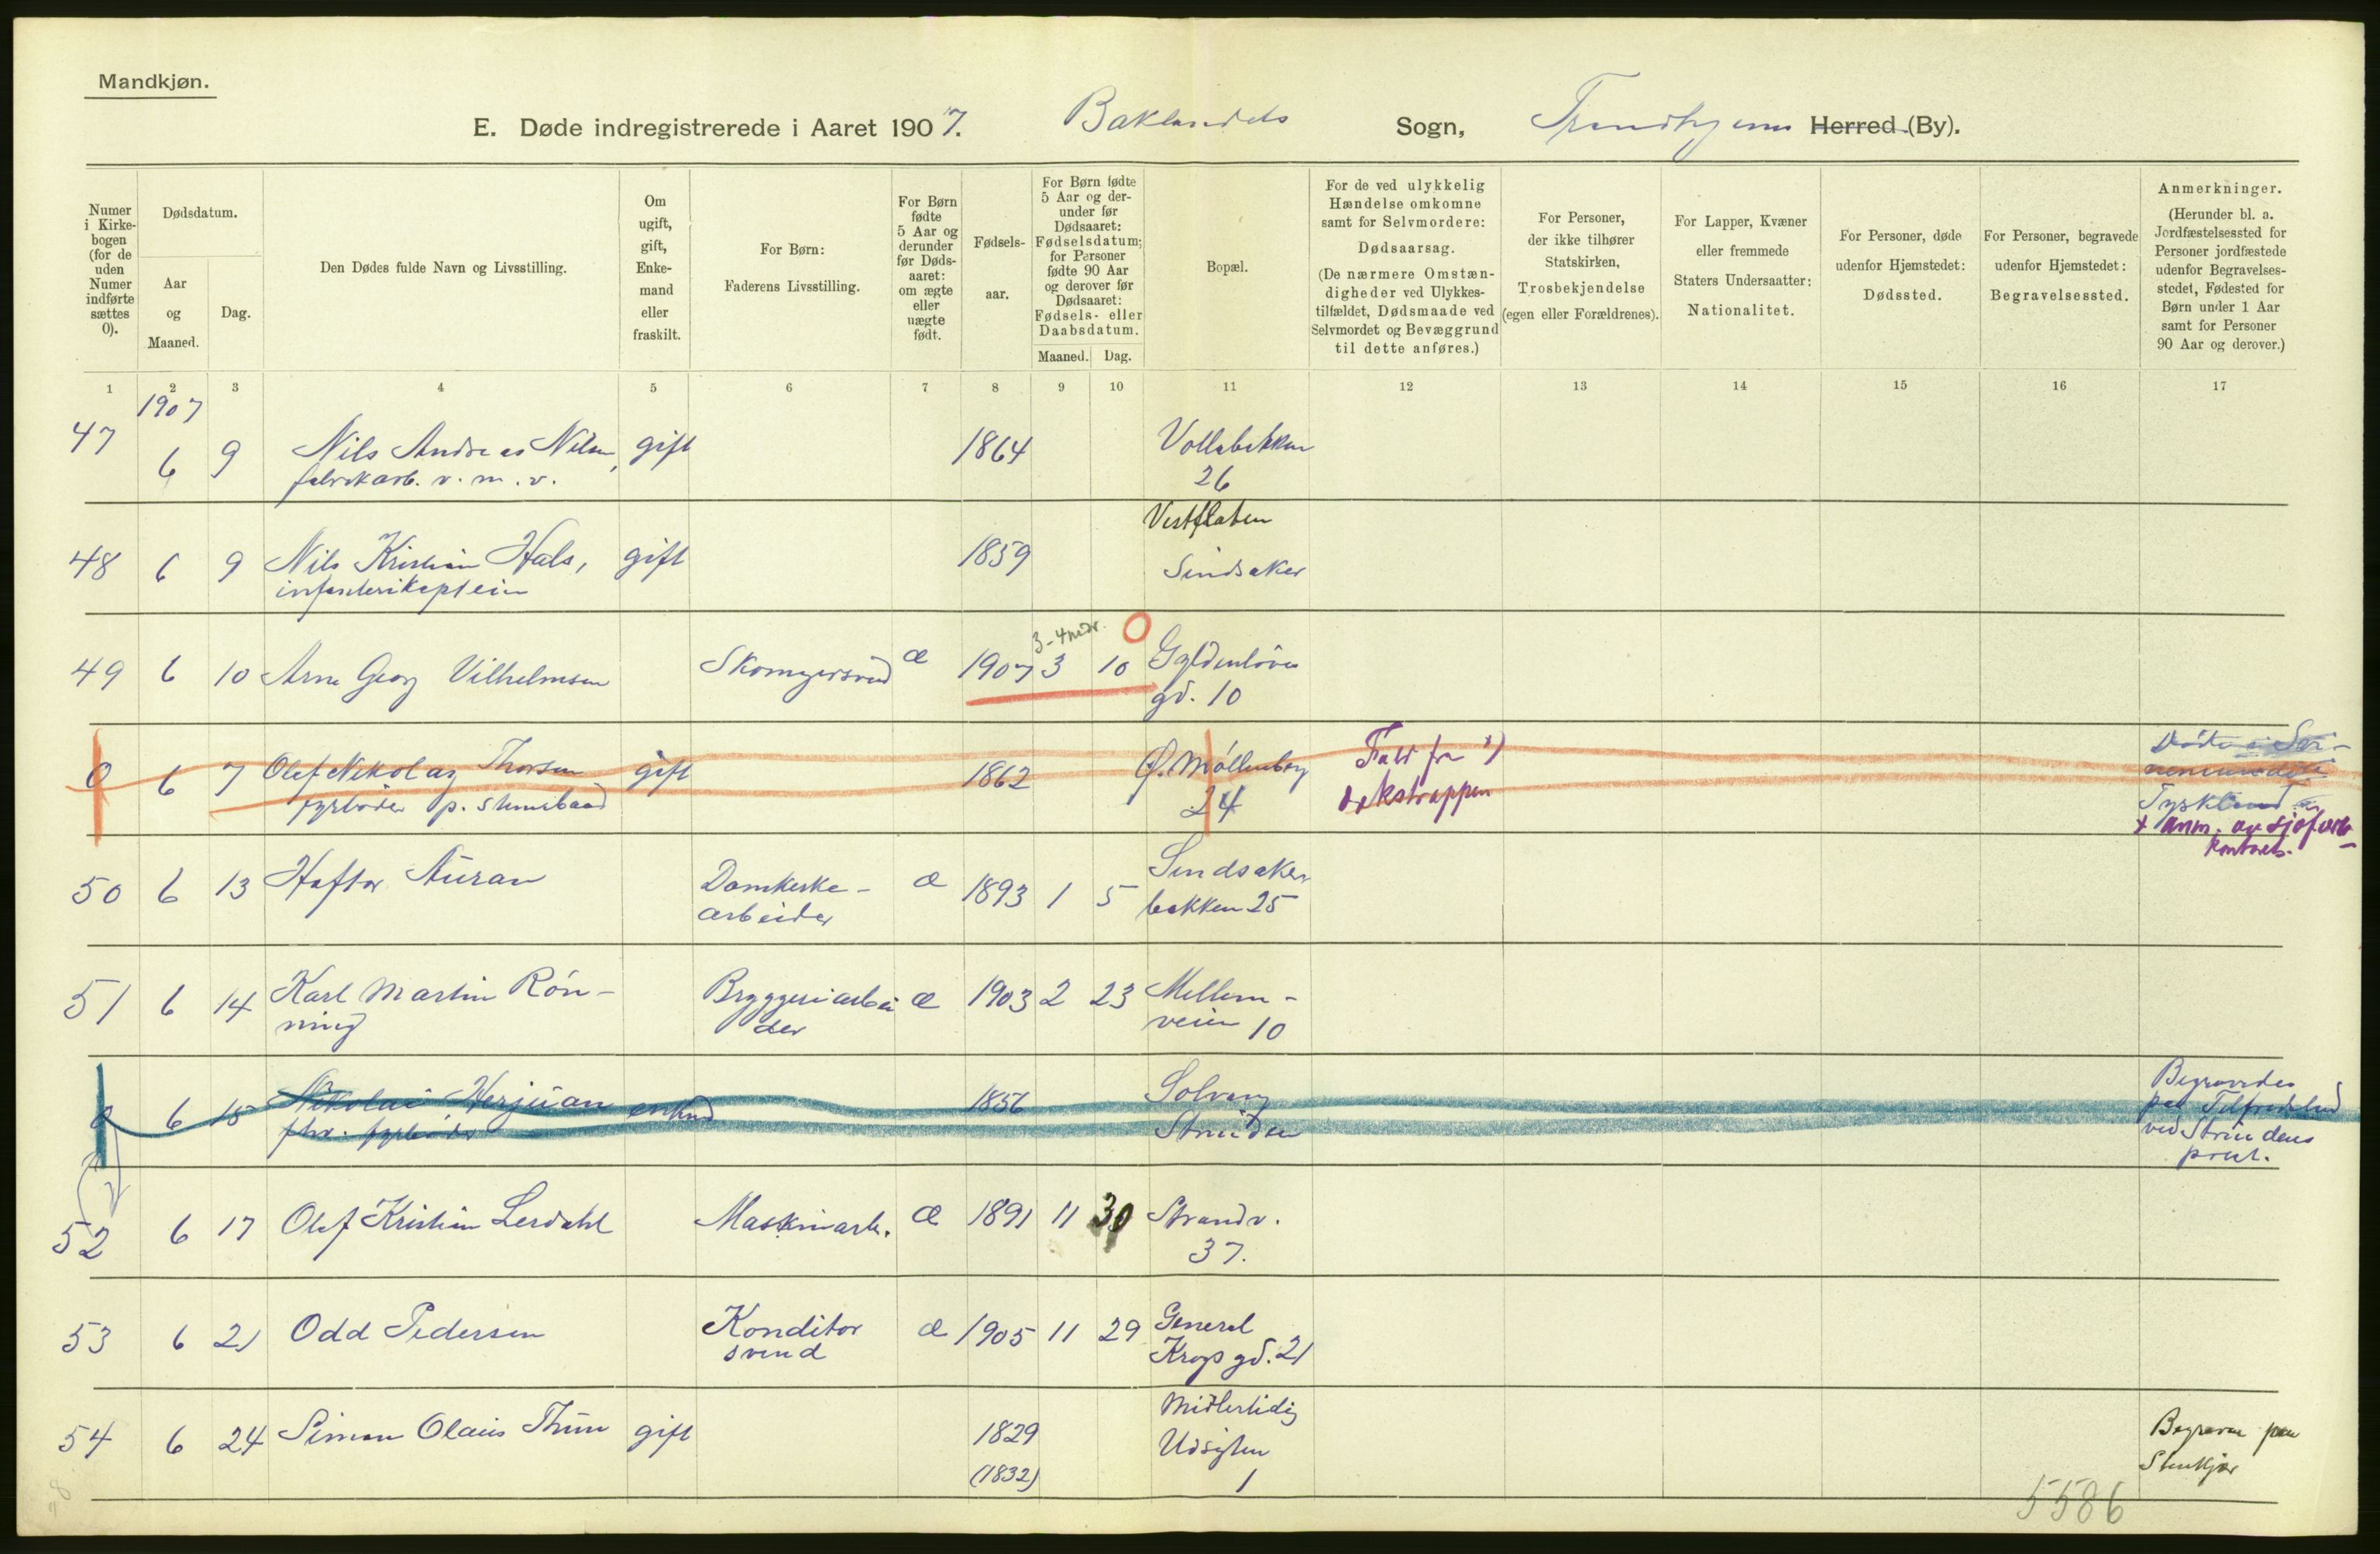 Mandkjøn.
E. Døde indregistrerede i Aaret 1907. Baklandets Sogn, Trondhjems Herred (By).
Numer i Kirkebogen (for de uden Numer indførte sættes 0).
Dødsdatum.
Aar og Maaned.
Dag.
Den Dødes fulde Navn og Livsstilling.
Om ugift, gift, Enkemand eller fraskilt.
For Børn:
Faderens Livsstilling.
For Børn fødte 5 Aar og derunder før Dødsaaret: om ægte eller uægte født.
Fødselsaar.
For Børn fødte 5 Aar og derunder før Dødsaaret: Fødselsdatum; for Personer fødte 90 Aar og derover før Dødsaaret: Fødsels- eller Daabsdatum.
Maaned. Dag.
Bopæl.
For de ved ulykkelig Hændelse omkomne samt for Selvmordere:
Dødsaarsag.
(De nærmere Omstændigheder ved Ulykkestilfældet, Dødsmaade ved Selvmordet og Bevæggrund til dette anføres.)
For Personer, der ikke tilhører Statskirken,
Trosbekjendelse
(egen eller Forældrenes).
For Lapper, Kvæner eller fremmede Staters Undersaatter:
Nationalitet.
For Personer, døde udenfor Hjemstedet:
Dødssted.
For Personer, begravede udenfor Hjemstedet:
Begravelsessted.
Anmerkninger.
(Herunder bl. a. Jordfæstelsessted for Personer jordfæstede udenfor Begravelsesstedet, Fødested for Børn under 1 Aar samt for Personer 90 Aar og derover.)
1 2 3 4 5 6 7 8 9 10 11 12 13 14 15 16 17
1907
47 6 9 Nils Andreas Nilsen, gift 1864 Vollabakken
fabrikarb. v. m. v. 26
Vestflaten
48 6 9 Nils Kristian Hals, gift 1859 Sindsaker
infanterikaptein
3-4 mdr. 0
49 6 10 Arne Georg Vilhelmsen Skomagersvend æ 1907 3 10 Gyldenløves
gd. 10
0 6 7 Olef Nikolay Thorsen gift 1862 Ø. Møllenberg Fald fra x)
fyrbøder p. 24 dækstrappen
Tyskland
x Anm. av sjøf.
kontoret.
50 6 13 Haftor Auran Domkirke- æ 1893 1 5 Sindsaker
arbeider bakken 25
51 6 14 Karl Martin Røn- Bryggeriarbei æ 1903 2 23 Mellem-
ning der veien 10
0 6 15 Nikolai Herjuan enkmd 1856 Solvang Begravedes
fhv. fyrbøder Strinden paa Tilfredshed
ved Strindens
prest.
52 6 17 Olef Kristian Lerdahl Maskinarb. æ 1891 11 30 Strandv.
37.
53 6 21 Odd Pedersen Konditor æ 1905 11 29 General
svend Krogs gd. 21
54 6 24 Simon Olaus Thun gift 1829 Midlertidig Begraven paa
(1832) Udsigten Stenkjær
1
5586